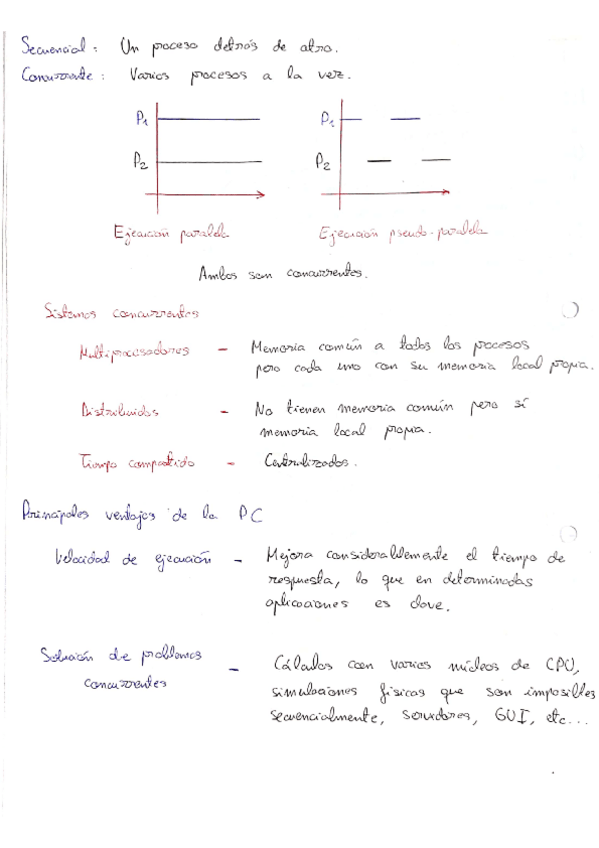 Secuencial: Un proceso detrás de otro.
Concurrente: Varios procesos a la vez.
P1 P1
P2 P2
Ejecución paralela Ejecución pseudo-paralela
Ambos son concurrentes.
Sistemas concurrentes
Multiprocesadores - Memoria común a todos los procesos
pero cada uno con su memoria local propia.
Distribuidos - No tienen memoria común pero sí
memoria local propia.
Tiempo compartido - Centralizados.
Principales ventajas de la PC
Velocidad de ejecución - Mejora considerablemente el tiempo de
respuesta, lo que en determinadas
aplicaciones es clave.
Solución de problemas
concurrentes - Cálculos con varios núcleos de CPU,
simulaciones físicas que son imposibles
secuencialmente, servidores, GUI, etc...